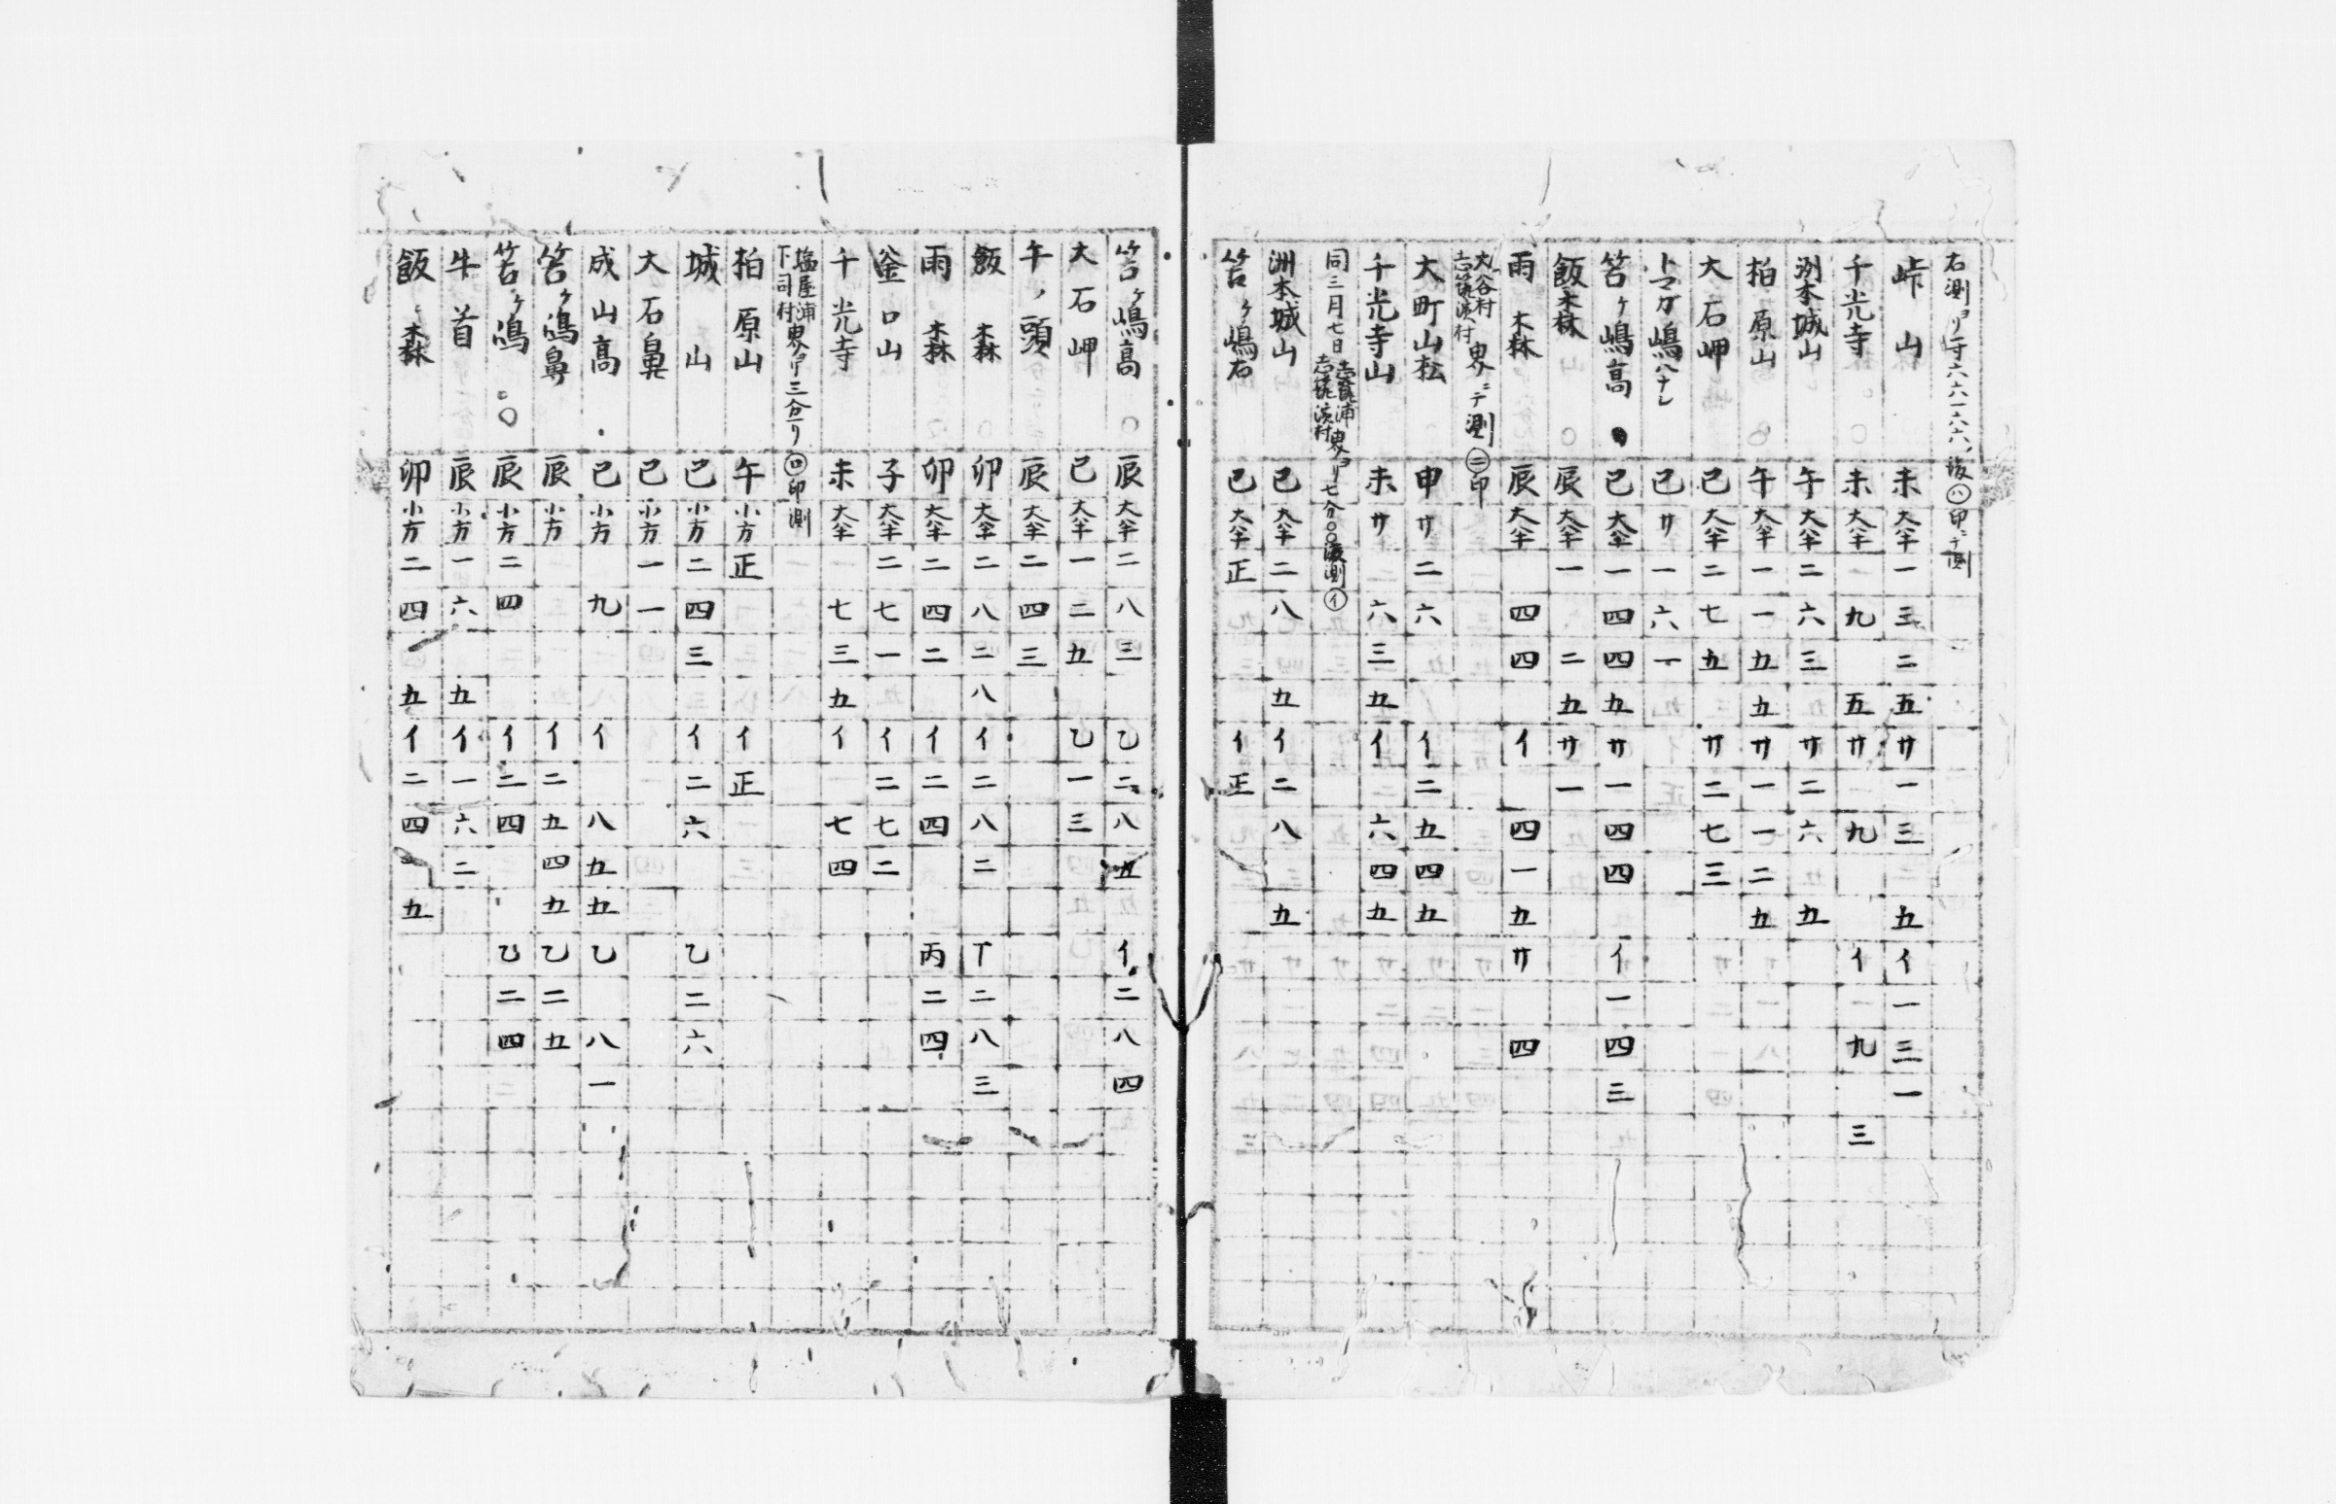 右測ヨリ一丁六六一六六六、坂㋩印ニテ測
峠山 未 大半 一三二五 サ一三 五 イ一三一
千光寺 未 大半 九 五 サ 九 イ 九 三
洲本城山 午 大半 二六三 サ二六 五
柏原山 午 大半 一一五五 サ一一二五
大石岬 巳 大半 二七五 サ二七三
トマガ嶋ハナレ 巳 サ 一六一
笘ヶ嶋髙 巳 大半 一四四五 サ一四四 イ一四三
飯森 辰 大半 一 二五 サ一
雨森 辰 大半 四四 イ 四一五 サ 四
大谷村 志筑濱村 界ニテ測 ㊁印
大町山松 申 サ 二六 イ二五四五
千光寺山 未 サ 六三五 イ 六四五
同三月七日 志筑浦 志筑濱村 界ヨリ七分〇〇測 ㋑
洲本城山 巳 大半 二八 五 イ二八 五
笘ヶ嶋石 巳 大半 正 イ正
笘ヶ嶋髙 辰 大半 二八三 乙二八五 イ二八四
大石岬 巳 大半 一二五 乙一三
午ノ頭 辰 大半 二四三
飯森 卯 大半 二八二八 イ二八二 丁二八三
雨森 卯 大半 二四二 イ二四 丙二四
釜口山 子 大半 二七一 イ二七二
千光寺 未 大半 七三五 イ 七四
塩屋浦 下司村 界ヨリ三分一リ ㋺印測
柏原山 午 小方 正 イ正
城山 巳 小方 二四三 イ二六 乙二六
大石鼻 巳 小方 一一
成山髙 巳 小方 九 イ 八五五 乙 八一
笘ヶ嶋鼻 辰 小方 イ二五四五 乙二五
笘ヶ嶋 辰 小方 二四 イ二四 乙二四
牛首 辰 小方 一六 五 イ一六二
飯森 卯 小方 二四 五 イ二四 五